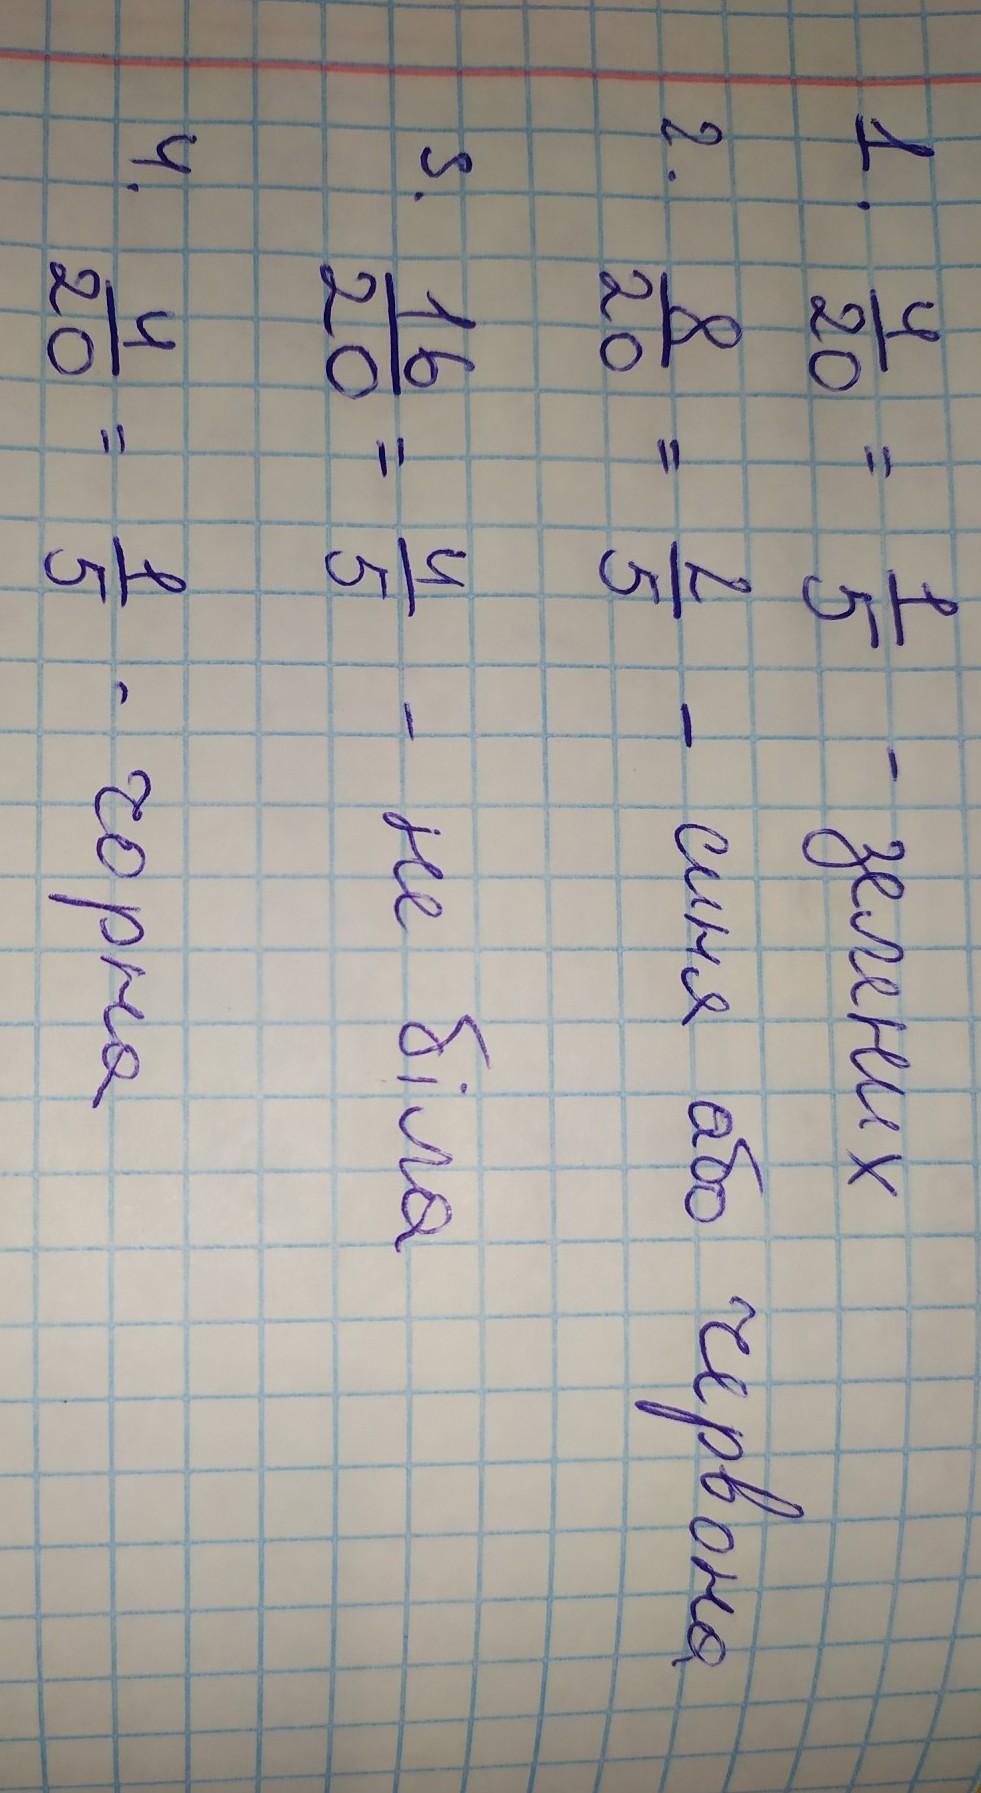 1. 4/20 = 1/5 - зелених
2. 8/20 = 2/5 - синя або червона
3. 16/20 = 4/5 - не біла
4. 4/20 = 1/5 - чорна